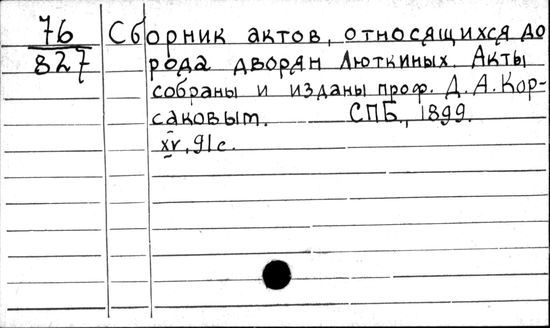 76
827
Сборник актов, относящихся до
рода дворян Люткиных. Акты
собраны и изданы проф. Д. А. Кор-
саковым. СПБ., 1899.
xv, 91 с.